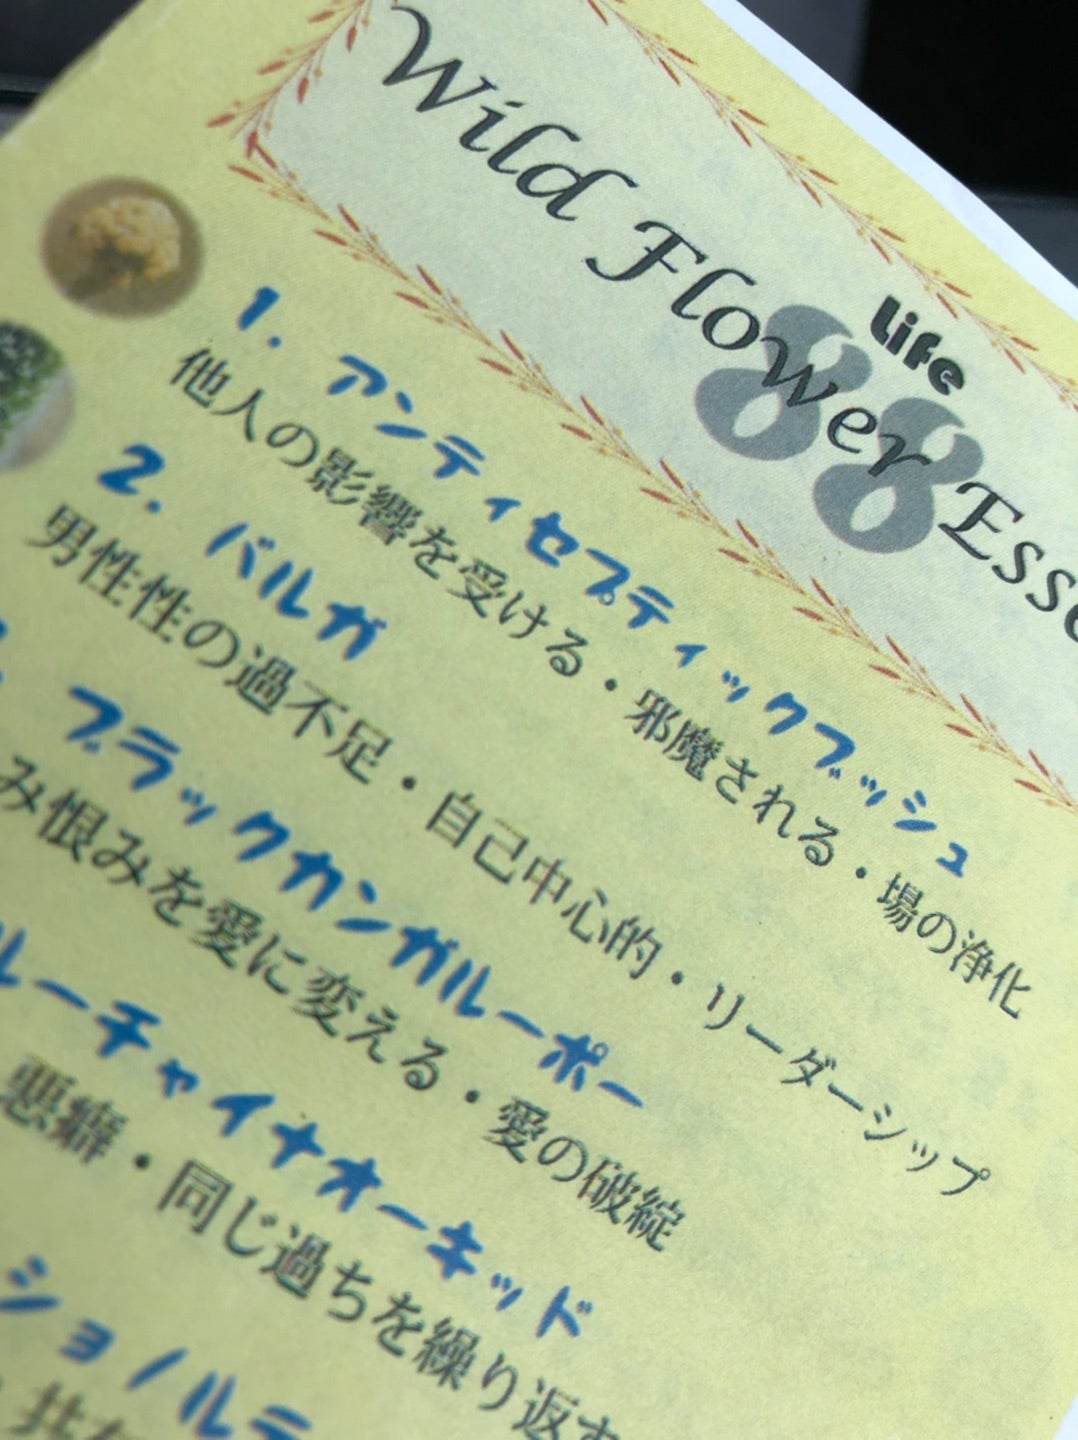 Wild Flower Esse
Life
88
1. アンティセプティックブッシュ
他人の影響を受ける・邪魔される・場の浄化
2. バルガ
男性性の過不足・自己中心的・リーダーシップ
ブラックカンガルーポー
み恨みを愛に変える・愛の破綻
ルーチャイナオーキッド
悪癖・同じ過ちを繰り返す
ショノルテ